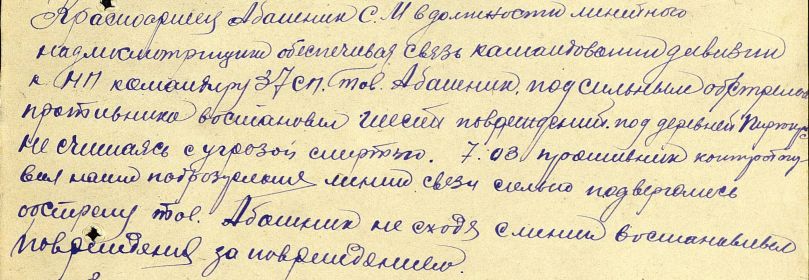 Красноармеец Абашник С.М в должности линейного
надсмотрщика обеспечивая связь командования дивизии
к НП командиру 37 сп. тов. Абашник. под сильным обстрелом
противника востановил шесть повреждений. под деревней
не считаясь с угрозой смертью. 7.03 противник контротаку
вал наши подрозделения линии связи сильно подвергались
обстрелу тов. Абашник не сходя с линии востанавливал
повреждения за повреждением.